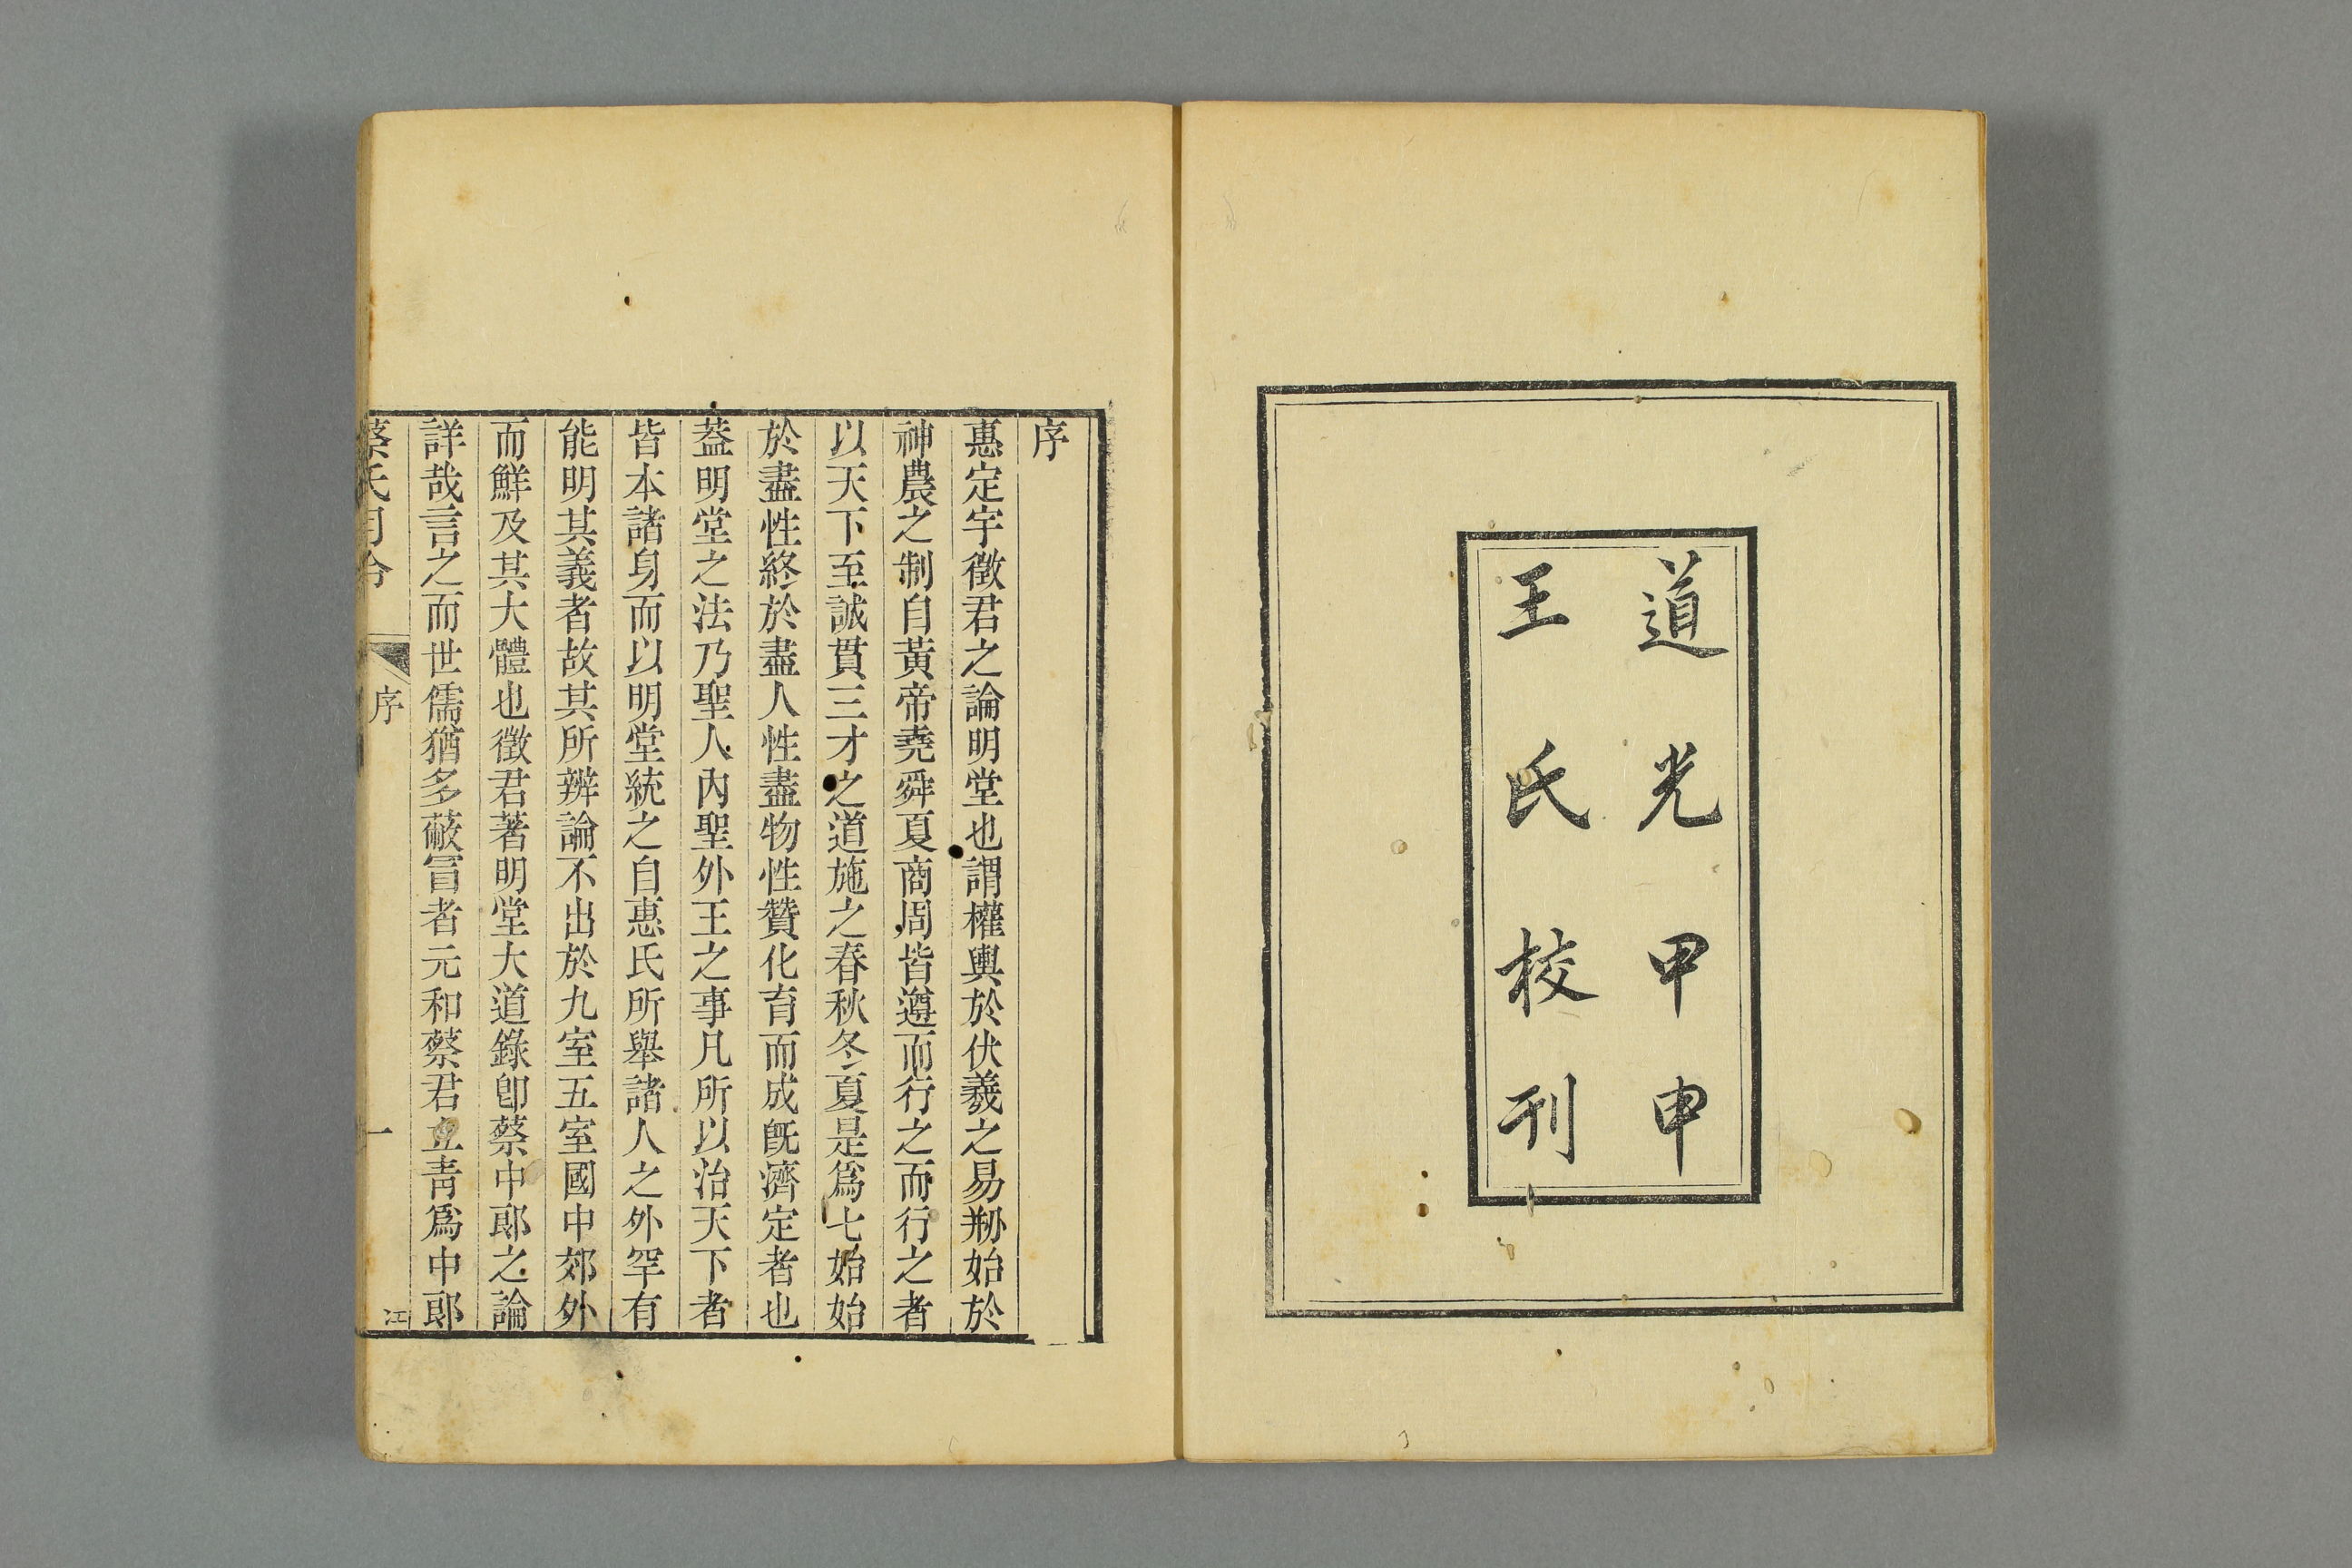 道光甲申
王氏校刊
序
惠定宇徵君之論明堂也謂權輿於伏羲之易刱始於
神農之制自黃帝堯舜夏商周皆遵而行之而行之者
以天下至誠貫三才之道施之春秋冬夏是爲七始始
於盡性終於盡人性盡物性贊化育而成旣濟定者也
葢明堂之法乃聖人內聖外王之事凡所以治天下者
皆本諸身而以明堂統之自惠氏所舉諸人之外罕有
能明其義者故其所辨論不出於九室五室國中郊外
而鮮及其大體也徵君著明堂大道錄卽蔡中郞之論
詳哉言之而世儒猶多蔽冒者元和蔡君立青爲中郞
蔡氏月令
序
一
江